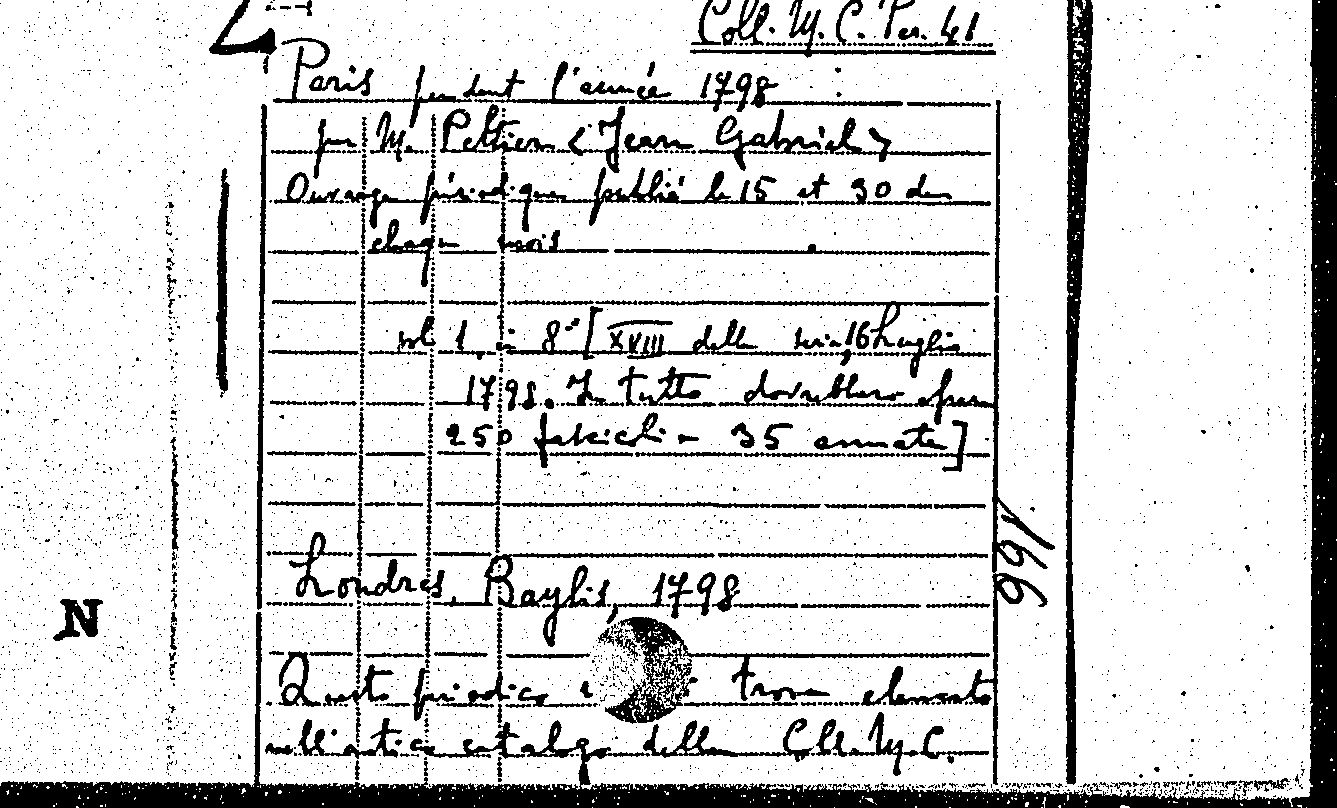 Coll. M. C. Per. 41
Paris pendant l'année 1798 :
par M. Peltier <Jean Gabriel>
Ouvrage périodique publié le 15 et 30 de
chaque mois
vol 1. in 8° [XVIII della serie, 16 Luglio
1798. In tutto dovrebbero
250 fascicoli in 35 annate]
Londres, Baylis, 1798
166
N
Questo periodico trova elencato
nell'antico catalogo della Coll. M. C.